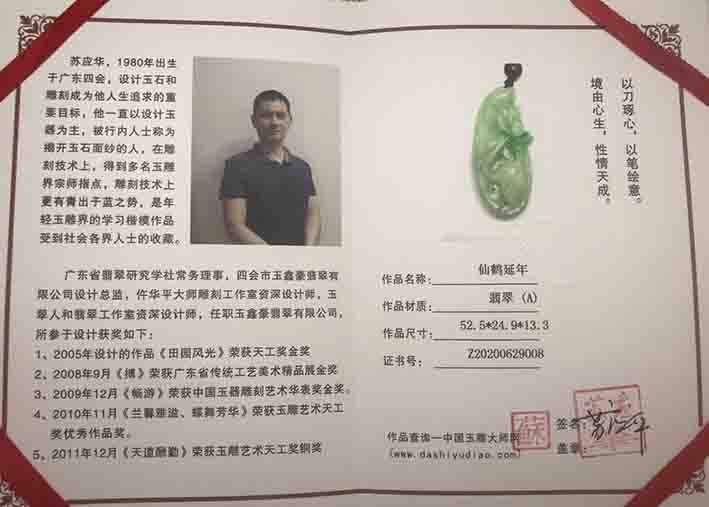 苏应华，1980年出生
于广东四会，设计玉石和
雕刻成为他人生追求的重
要目标，他一直以设计玉
器为主，被行内人士称为
揭开玉石面纱的人，在雕
刻技术上，得到多名玉雕
界宗师指点，雕刻技术上
更有青出于蓝之势，是年
轻玉雕界的学习楷模作品
受到社会各界人士的收藏。
广东省翡翠研究学社常务理事，四会市玉鑫豪翡翠有
限公司设计总监，仵华平大师雕刻工作室资深设计师，玉
翠人和翡翠工作室资深设计师，任职玉鑫豪翡翠有限公司，
所参于设计获奖如下：
1、2005年设计的作品《田园风光》荣获天工奖金奖
2、2008年9月《搏》荣获广东省传统工艺美术精品展金奖
3、2009年12月《畅游》荣获中国玉器雕刻艺术华表奖金奖。
4、2010年11月《兰馨雅逸、蝶舞芳华》荣获玉雕艺术天工
奖优秀作品奖。
5、2011年12月《天道酬勤》荣获玉雕艺术天工奖铜奖
以刀琢心，以笔绘意。
境由心生，性情天成。
作品名称： 仙鹤延年
作品材质： 翡翠 (A)
作品尺寸： 52.5*24.9*13.3
证书号： Z20200629008
作品查询—中国玉雕大师网
(www.dashiyudiao.com)
签名：
盖章：